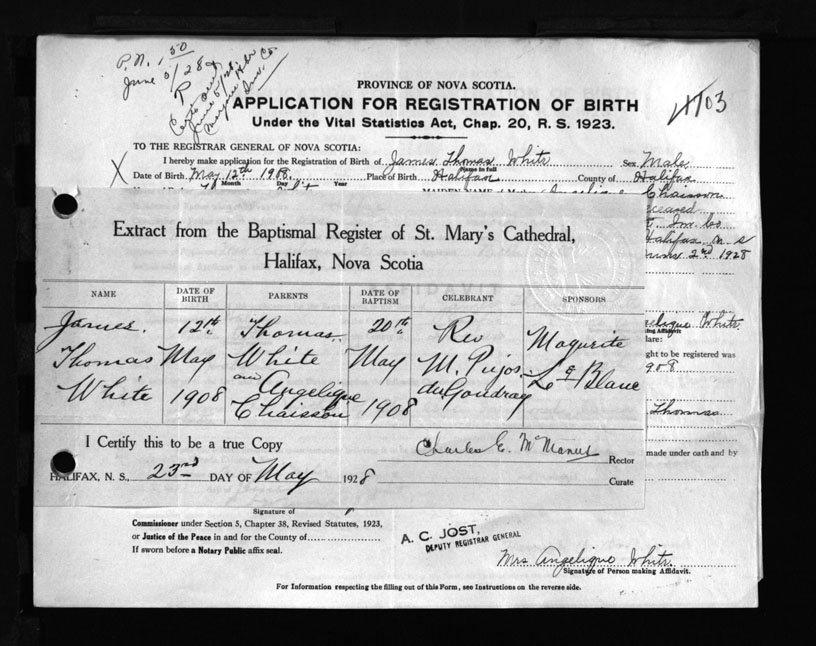 P.N. 1 50
June 5/28
4703
PROVINCE OF NOVA SCOTIA.
APPLICATION FOR REGISTRATION OF BIRTH
Under the Vital Statistics Act, Chap. 20, R. S. 1923.
TO THE REGISTRAR GENERAL OF NOVA SCOTIA:
X I hereby make application for the Registration of Birth of James Thomas White Sex Male
Name in full
Date of Birth May 12th 1908. Place of Birth Halifax County of Halifax
Month Day Year
Angelique Chaisson
eceased
Halifax N S
2nd 1928
Extract from the Baptismal Register of St. Mary's Cathedral,
Halifax, Nova Scotia
NAME DATE OF BIRTH PARENTS DATE OF BAPTISM CELEBRANT SPONSORS
James. 12th Thomas 20th Rev Magurite
Thomas May White May M. Pujos
White 1908 and Angelique Chaisson 1908 Le Blanc
elique White
ing Affidavit
lare:
ght to be registered was
908
Thomas
made under oath and by
I Certify this to be a true Copy
Charles E. McManus Rector
HALIFAX, N. S., 23rd DAY OF May 1928 Curate
Signature of
Commissioner under Section 5, Chapter 38, Revised Statutes, 1923,
or Justice of the Peace in and for the County of
If sworn before a Notary Public affix seal.
A. C. JOST,
DEPUTY REGISTRAR GENERAL
Mrs Angelique White
Signature of Person making Affidavit.
For Information respecting the filling out of this Form, see Instructions on the reverse side.